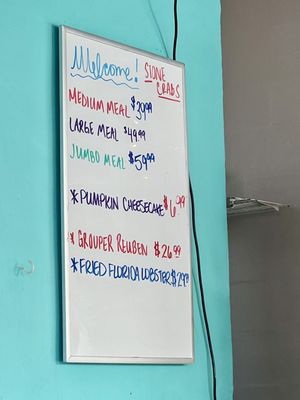 Welcome! STONE
CRABS
MEDIUM MEAL $39.99
LARGE MEAL $49.99
JUMBO MEAL $59.99
*PUMPKIN CHEESECAKE $6.99
* GROUPER REUBEN $26.99
*FRIED FLORIDA LOBSTER $29.99